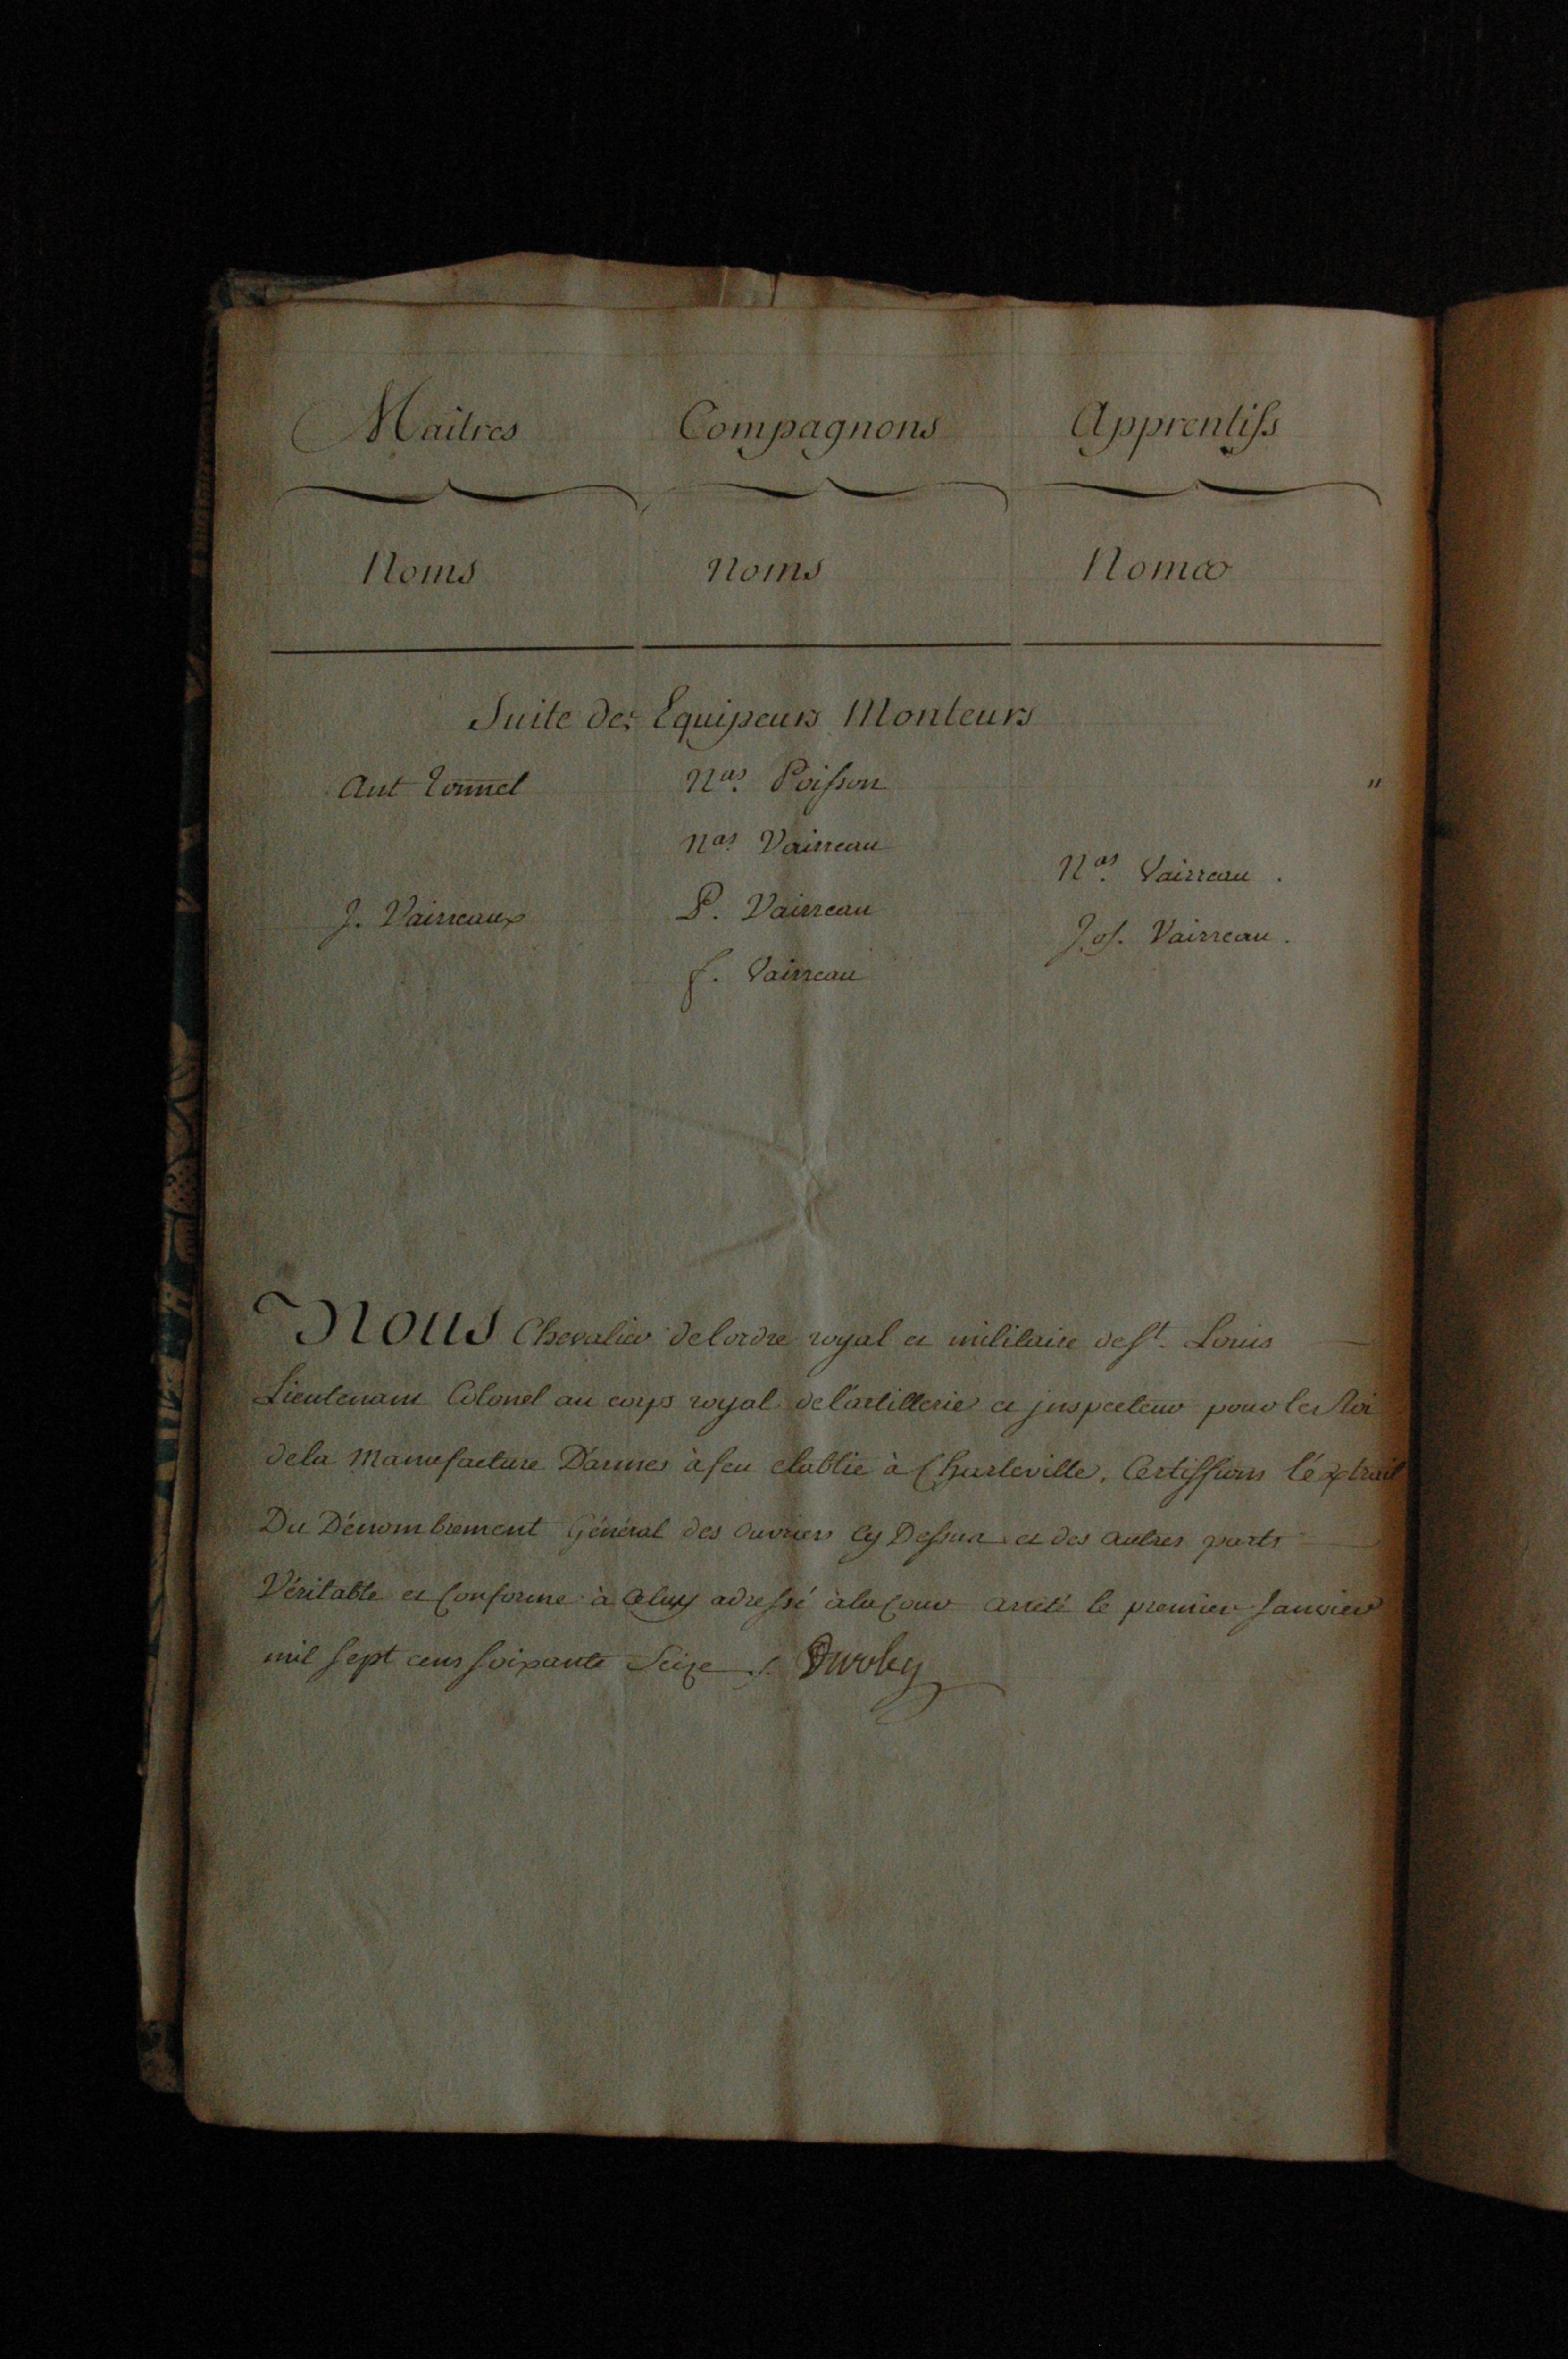 Maitres Compagnons Apprentiss
Noms Noms Noms
Suite des Equipeurs Monteurs
Ant Tonnel Nas. Poisson "
Nas. Vaisseau
Nas. Vaisseau.
J. Vaisseaux P. Vaisseau
Jos. Vaisseau.
f. Vaisseau
Nous Chevalier de lordre royal et militaire de St. Louis
Lieutenant Colonel au corps royal de l'artillerie et jnspecteur pour le Roi
de la Manufacture D'armes à feu etablie à Charleville, Certiffions l'éxtrait
Du Dénombrement Général des Ouvriers Cy Dessus et des autres parts
Véritable et Conforme à Celuy adressé à la Cour arreté le premier Janvier
mil sept cens soixante Seize